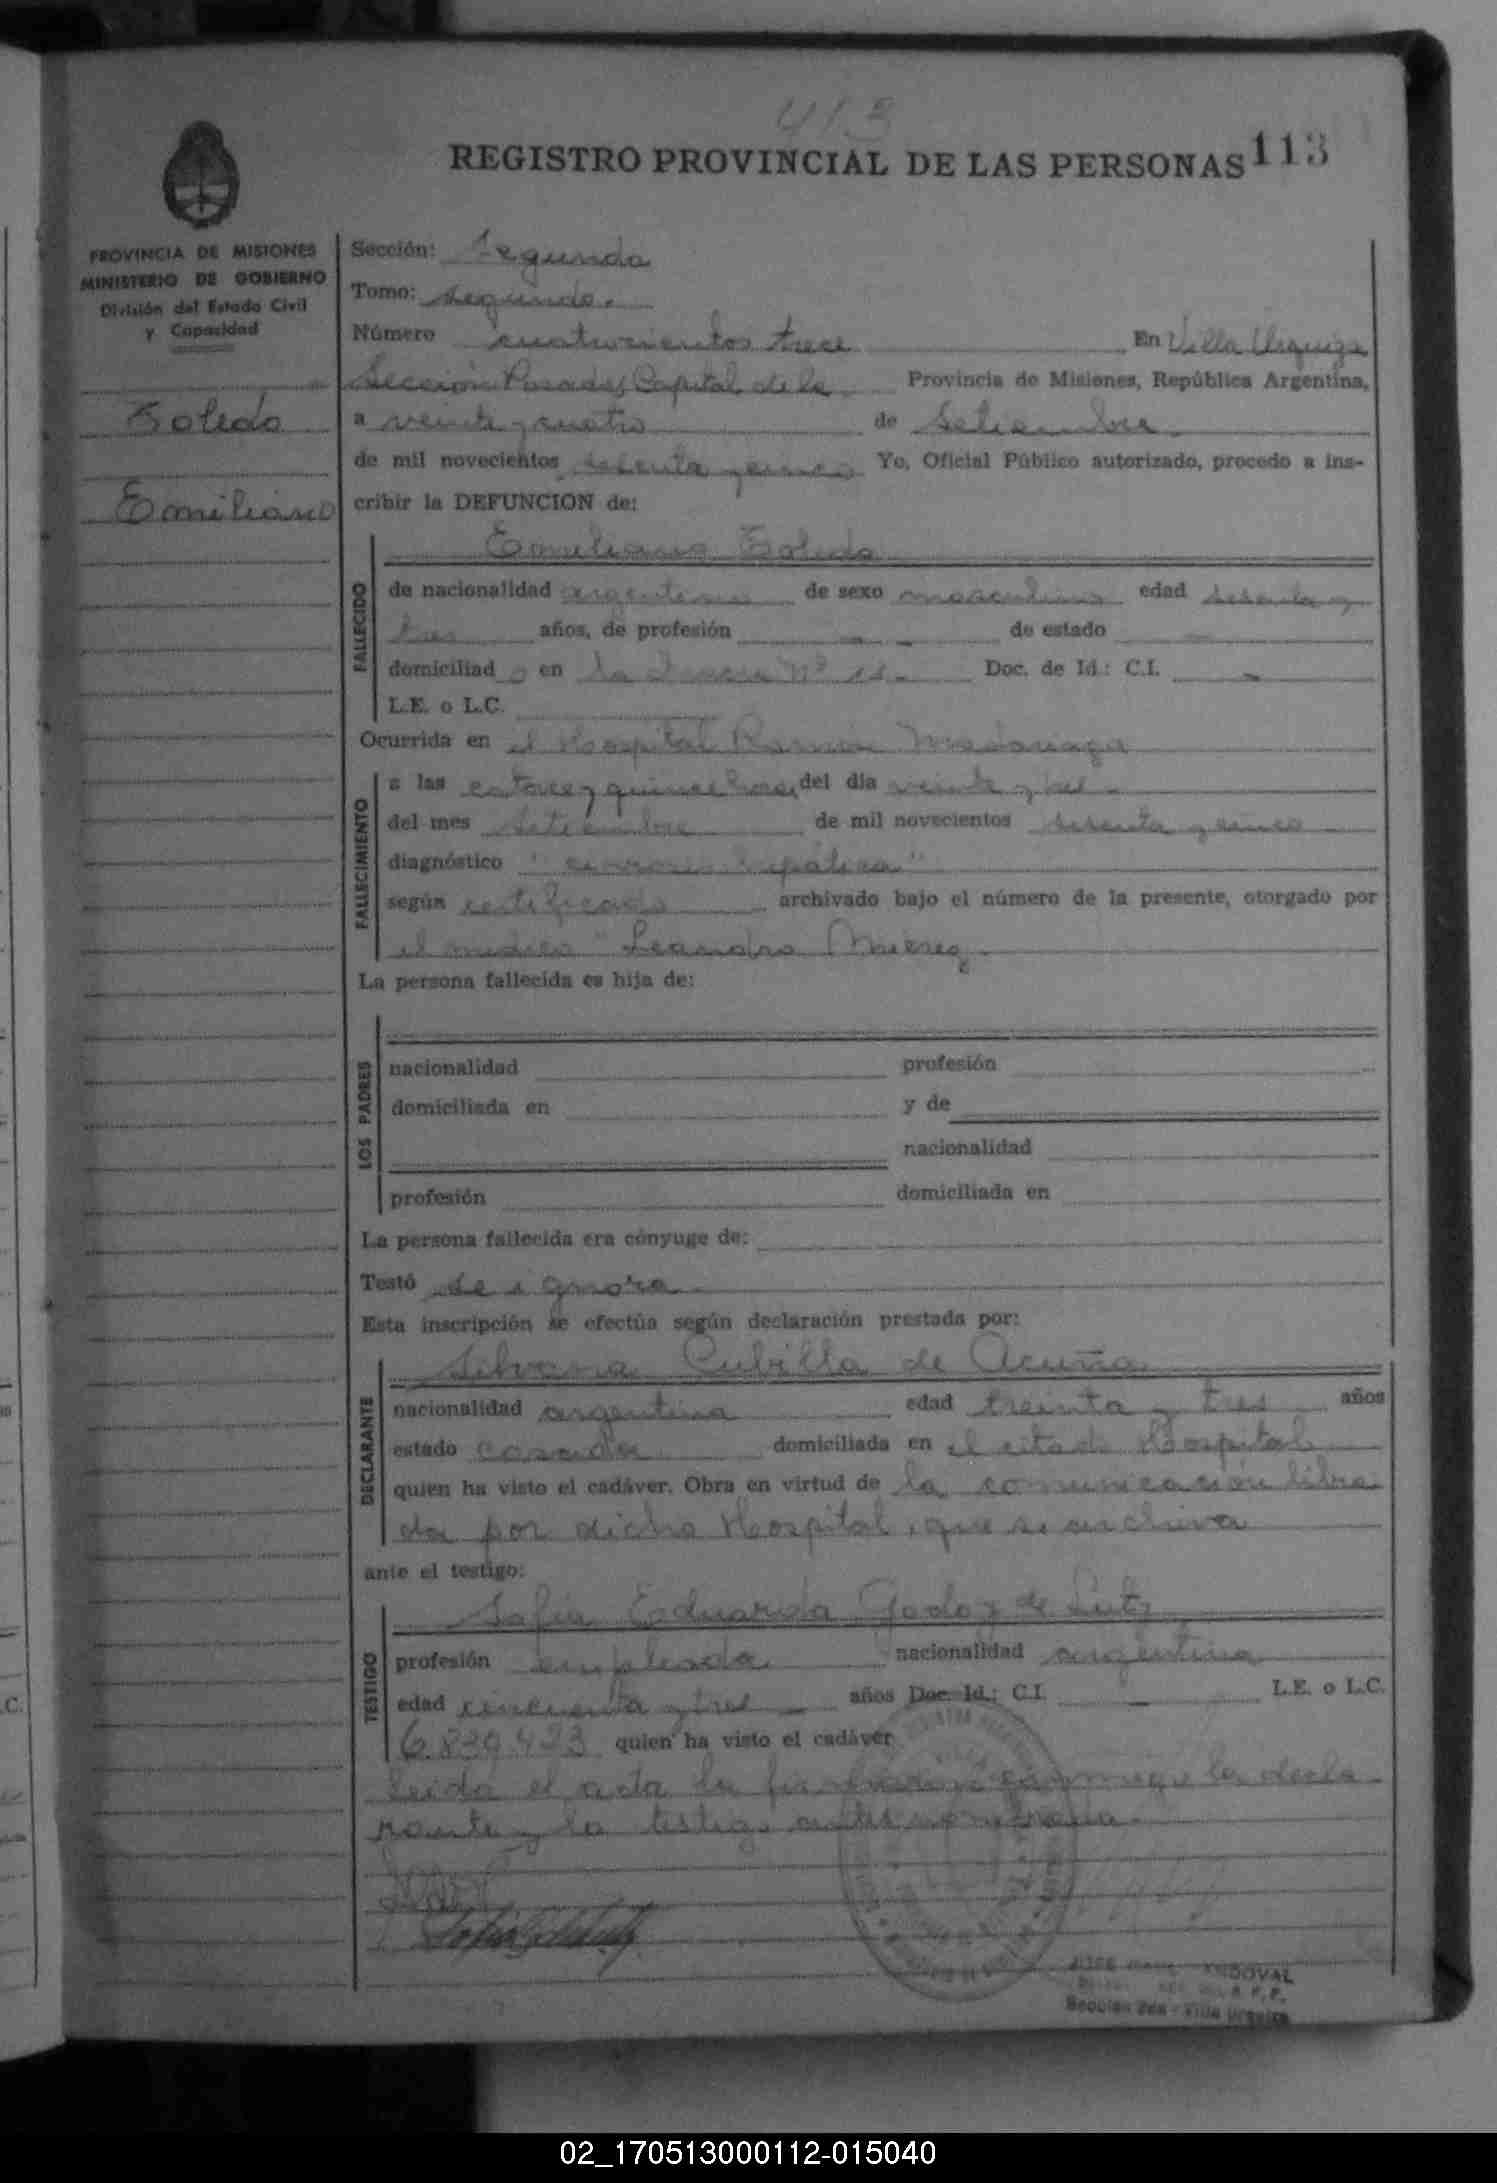 413
REGISTRO PROVINCIAL DE LAS PERSONAS 113
PROVINCIA DE MISIONES
MINISTERIO DE GOBIERNO
División del Estado Civil
y Capacidad
Toledo
Emiliano
Sección: Segunda
Tomo: segundo.
Número cuatrocientos trece En Villa Urquiza
Sección Posadas Capital de la Provincia de Misiones, República Argentina,
a veinte y cuatro de Setiembre
de mil novecientos sesenta y cinco Yo, Oficial Público autorizado, procedo a ins-
cribir la DEFUNCION de:
Emiliano Toledo
FALLECIDO
de nacionalidad argentino de sexo masculino edad sesenta y
tres años, de profesión - - de estado -
domiciliad o en La Nº Doc. de Id.: C.I. -
L.E. o L.C.
Ocurrida en el Hospital Ramón Madariaga
FALLECIMIENTO
a las catorce y quince horas del día veinte y tres -
del mes Setiembre de mil novecientos sesenta y cinco
diagnóstico "cirrosis hepática"
según certificado archivado bajo el número de la presente, otorgado por
el médico Leandro
La persona fallecida es hija de:
LOS PADRES
nacionalidad profesión
domiciliada en y de
nacionalidad
profesión domiciliada en
La persona fallecida era cónyuge de:
Testó se ignora
Esta inscripción se efectúa según declaración prestada por:
Silvana Cubilla de Acuña
DECLARANTE
nacionalidad argentina edad treinta y tres años
estado casada domiciliada en el citado Hospital
quien ha visto el cadáver. Obra en virtud de la comunicación libra
da por dicho Hospital, que se archiva
ante el testigo:
Sofia Eduarda Godoy de Lutz
TESTIGO
profesión empleada nacionalidad argentina
edad cincuenta y tres años Doc. Id.: C.I. - L.E. o L.C.
6.839.423 quien ha visto el cadáver
Leida el acta la conmigo la decla
rante y la testigo antes nombrada.
JOSE SANDOVAL
Sección 2da - Villa Urquiza
02_170513000112-015040